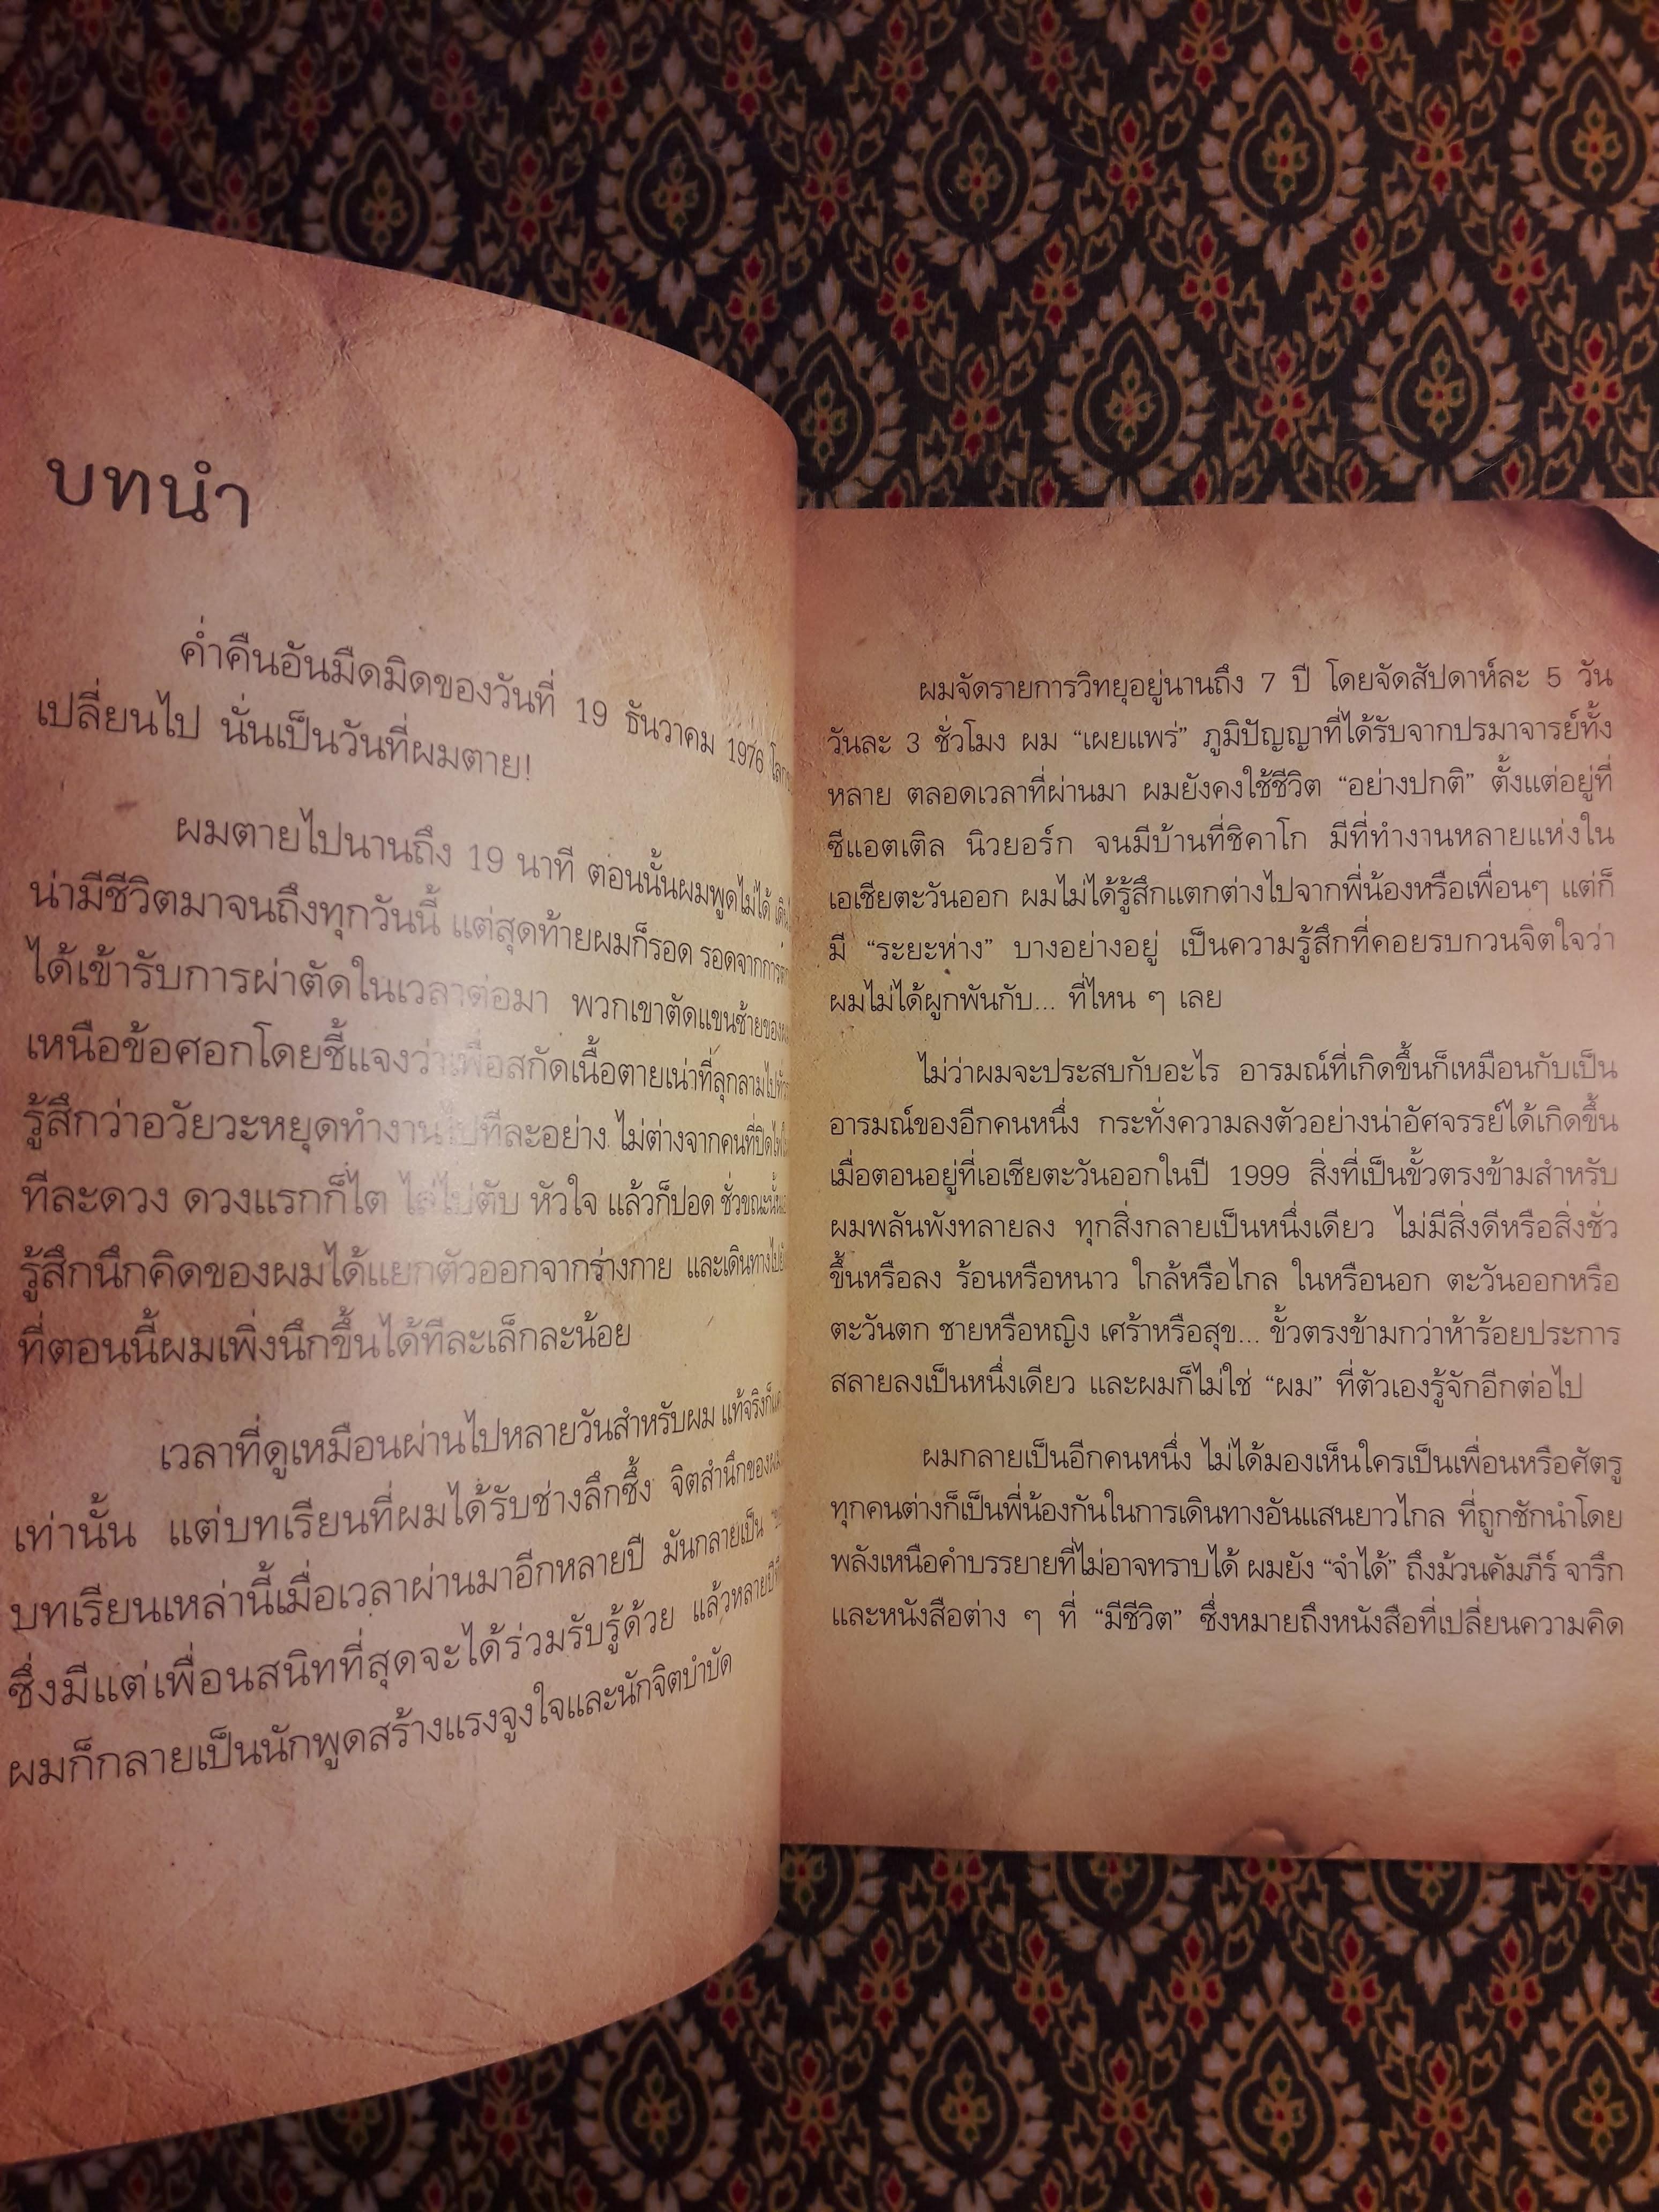 บทนำ
ค่ำคืนอันมืดมิดของวันที่ 19 ธันวาคม 1976
เปลี่ยนไป นั่นเป็นวันที่ผมตาย!
ผมตายไปนานถึง 19 นาที ตอนนั้นผมพูดไม่ได้
น่ามีชีวิตมาจนถึงทุกวันนี้ แต่สุดท้ายผมก็รอด
ได้เข้ารับการผ่าตัดในเวลาต่อมา พวกเขาตัดแขนซ้าย
เหนือข้อศอกโดยชี้แจงว่าเพื่อสกัดเนื้อตายเน่าที่ลุกลาม
รู้สึกว่าอวัยวะหยุดทำงานไปทีละอย่าง ไม่ต่างจากคนที่
ทีละดวง ดวงแรกก็ไต ไล่ไปตับ หัวใจ แล้วก็ปอด
รู้สึกนึกคิดของผมได้แยกตัวออกจากร่างกาย
ที่ตอนนี้ผมเพิ่งนึกขึ้นได้ทีละเล็กละน้อย
เวลาที่ดูเหมือนผ่านไปหลายวันสำหรับผม
เท่านั้น แต่บทเรียนที่ผมได้รับช่างลึกซึ้ง
บทเรียนเหล่านี้เมื่อเวลาผ่านมาอีกหลายปี มันกลายเป็น
ซึ่งมีแต่เพื่อนสนิทที่สุดจะได้ร่วมรับรู้ด้วย
ผมก็กลายเป็นนักพูดสร้างแรงจูงใจและนักจิตบำบัด
ผมจัดรายการวิทยุอยู่นานถึง 7 ปี โดยจัดสัปดาห์ละ 5 วัน
วันละ 3 ชั่วโมง ผม “เผยแพร่” ภูมิปัญญาที่ได้รับจากปรมาจารย์ทั้ง
หลาย ตลอดเวลาที่ผ่านมา ผมยังคงใช้ชีวิต “อย่างปกติ” ตั้งแต่อยู่ที่
ซีแอตเติล นิวยอร์ก จนมีบ้านที่ชิคาโก มีที่ทำงานหลายแห่งใน
เอเชียตะวันออก ผมไม่ได้รู้สึกแตกต่างไปจากพี่น้องหรือเพื่อนๆ แต่ก็
มี “ระยะห่าง” บางอย่างอยู่ เป็นความรู้สึกที่คอยรบกวนจิตใจว่า
ผมไม่ได้ผูกพันกับ... ที่ไหน ๆ เลย
ไม่ว่าผมจะประสบกับอะไร อารมณ์ที่เกิดขึ้นก็เหมือนกับเป็น
อารมณ์ของอีกคนหนึ่ง กระทั่งความลงตัวอย่างน่าอัศจรรย์ได้เกิดขึ้น
เมื่อตอนอยู่ที่เอเชียตะวันออกในปี 1999 สิ่งที่เป็นขั้วตรงข้ามสำหรับ
ผมพลันพังทลายลง ทุกสิ่งกลายเป็นหนึ่งเดียว ไม่มีสิ่งดีหรือสิ่งชั่ว
ขึ้นหรือลง ร้อนหรือหนาว ใกล้หรือไกล ในหรือนอก ตะวันออกหรือ
ตะวันตก ชายหรือหญิง เศร้าหรือสุข... ขั้วตรงข้ามกว่าห้าร้อยประการ
สลายลงเป็นหนึ่งเดียว และผมก็ไม่ใช่ “ผม” ที่ตัวเองรู้จักอีกต่อไป
ผมกลายเป็นอีกคนหนึ่ง ไม่ได้มองเห็นใครเป็นเพื่อนหรือศัตรู
ทุกคนต่างก็เป็นพี่น้องกันในการเดินทางอันแสนยาวไกล ที่ถูกชักนำโดย
พลังเหนือคำบรรยายที่ไม่อาจทราบได้ ผมยัง “จำได้” ถึงม้วนคัมภีร์ จารึก
และหนังสือต่าง ๆ ที่ “มีชีวิต” ซึ่งหมายถึงหนังสือที่เปลี่ยนความคิด